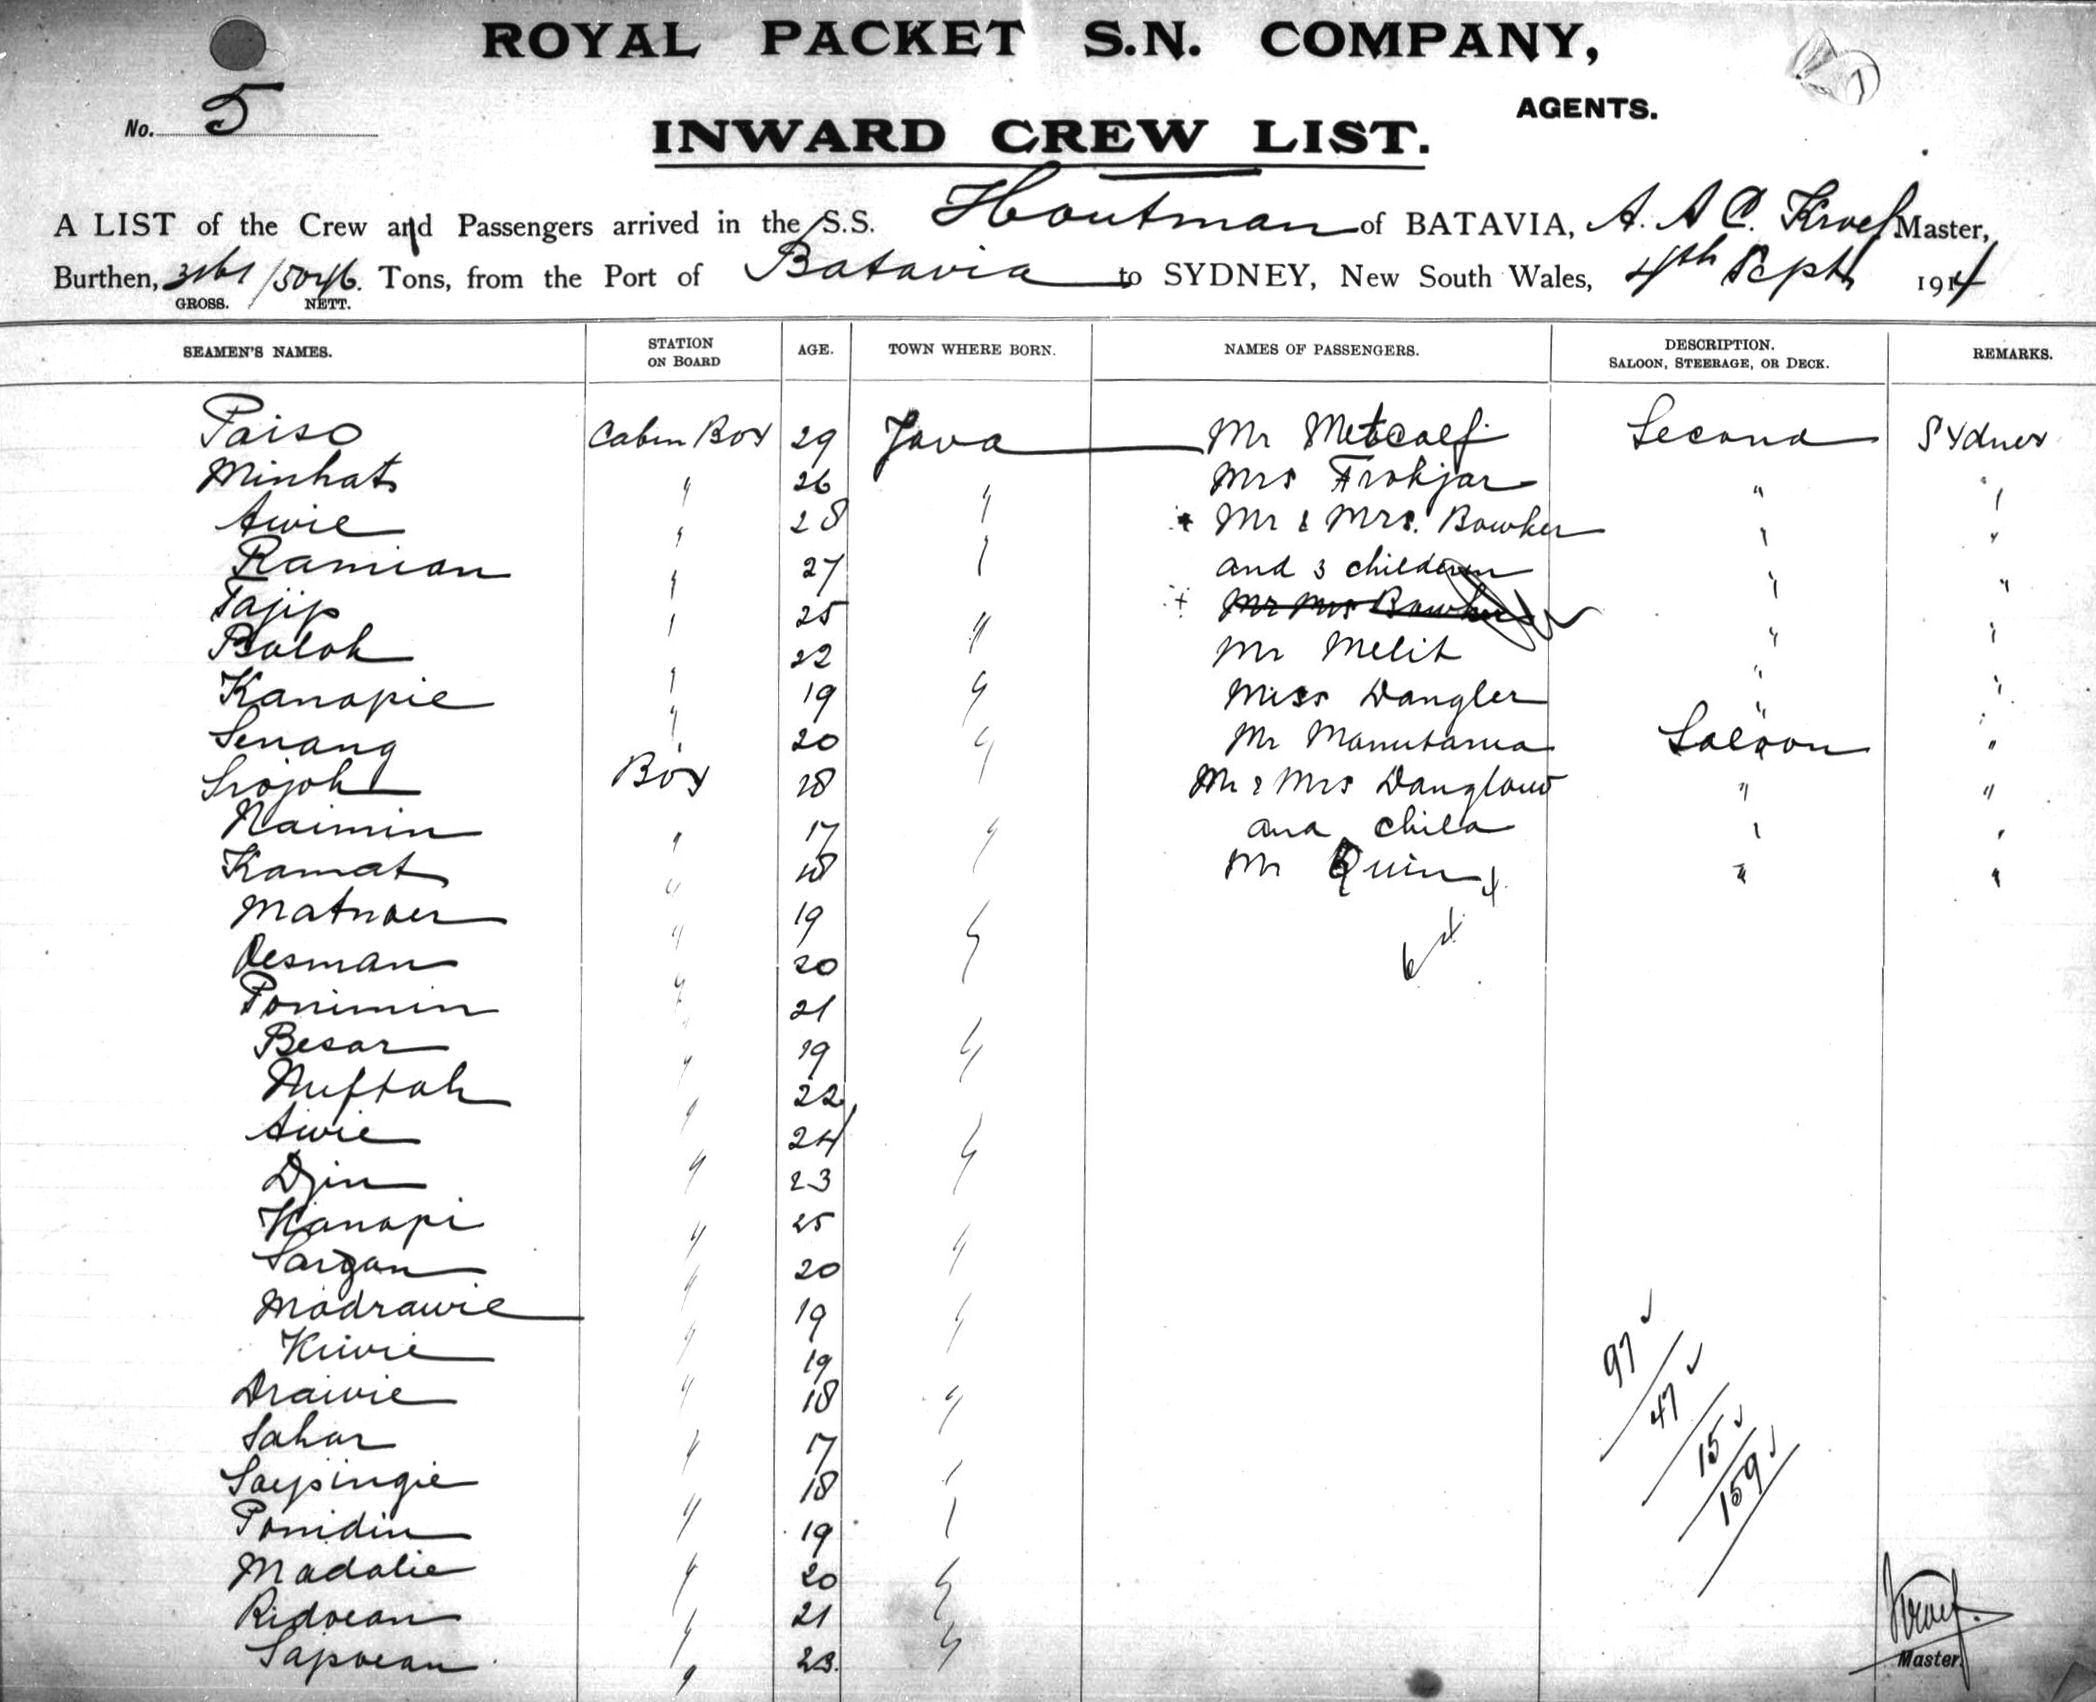 ROYAL PACKET S.N. COMPANY,
AGENTS.
No. 5
INWARD CREW LIST.
A LIST of the Crew and Passengers arrived in the S.S. Houtman of BATAVIA, A. A C. Kroef Master,
Burthen, Tons, from the Port of Batavia to SYDNEY, New South Wales, 4th Sept 1914
GROSS. NETT.
SEAMEN'S NAMES. STATION ON BOARD AGE. TOWN WHERE BORN. NAMES OF PASSENGERS. DESCRIPTION. SALOON, STEERAGE, OR DECK. REMARKS.
Paiso Cabin Boy 29 Java Mr Metcalf Second Sydney
Minhat " 26 " Mrs Frohjar " "
Awie " 28 " * Mr & Mrs. Bowker " "
Ramian " 27 " and 3 children " "
Tajip " 25 " + Mr Mrs Bowker " "
Balok " 22 " Mr Melit " "
Kanapie " 19 " Miss Dangler " "
Senang " 20 " Mr Manutama Saloon "
Srojoh Boy 28 " Mr & Mrs Danglow " "
Naimin " 17 " and child " "
Kamat " 18 Mr Quin " "
Matnoer " 19 "
Resman " 20 "
Ponimin " 21
Besar " 19 "
Miftah " 22
Awie " 24 "
Djin " 23 "
Kanapi " 25
Sargan " 20 "
Modrawie " 19 "
Kiwie " 19
Drawie " 18 "
Sahar " 17
Saepingie " 18 "
Ponidin " 19 "
Madalie " 20 "
Ridoean " 21
Sapoean " 23 "
97
47
15
159
Kroef.
Master.